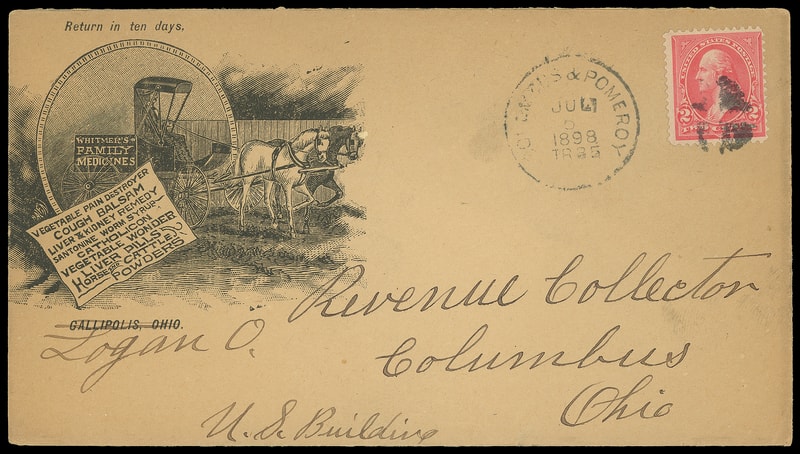 Return in ten days.
WHITMER'S
FAMILY
MEDICINES
VEGETABLE PAIN DESTROYER
COUGH BALSAM
LIVER & KIDNEY REMEDY
SANTONINE WORM SYRUP
CATHOLICON
VEGETABLE WONDER
LIVER PILLS
HORSE AND CATTLE
POWDERS
GALLIPOLIS, OHIO.
Logan O.
& POMEROY
JUL
1898
UNITED STATES POSTAGE
2 2
Revenue Collector
Columbus
Ohio
U.S. Building